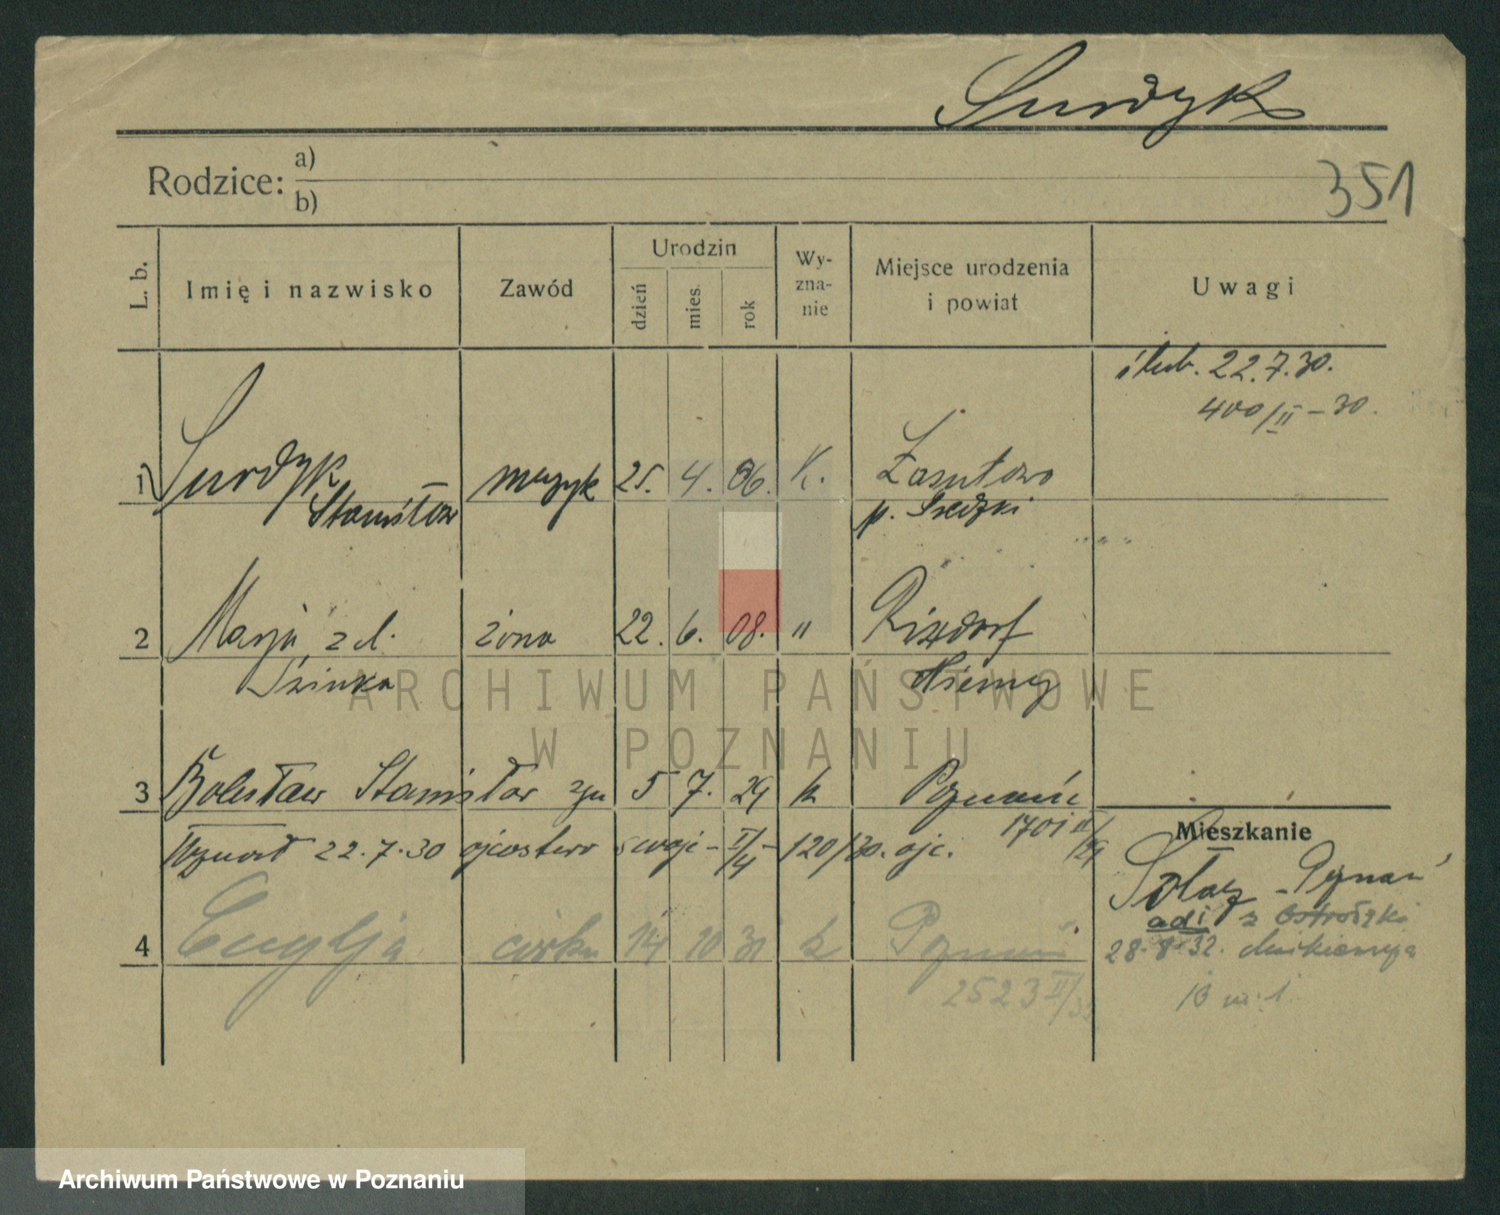 Surdyk
351
Rodzice: a)
b)
L. b. Imię i nazwisko Zawód Urodzin dzień mies. rok Wyznanie Miejsce urodzenia i powiat Uwagi
ślub. 22.7.30.
400/II – 30.
1 Surdyk Stanisław muzyk 25. 4. 06. K. Zasutowo
p. Średzki
2 Marja z d. żona 22. 6. 08. " Rixdorf
Niemcy
3 Bolesław Stanisław syn 5 7. 29 k Poznań
1701 II/29
Uznał 22.7.30 ojcostwo 120/30. ojc.
Mieszkanie
Sołacz - Poznań
adj. z
28.8.32.
4 córka 14 10 31 k Poznań
2523 II/31
10 m. 1.
ARCHIWUM PAŃSTWOWE
W POZNANIU
Archiwum Państwowe w Poznaniu